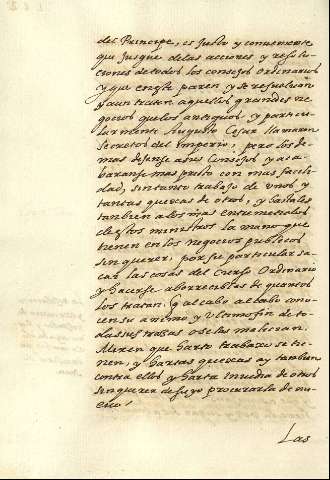 del Principe, es Justo y conueniente
que Juzgue de las acciones y resolu-
ciones de todos los consejos ordinarios
y que en este paren y se resueluan
y aun traten aquellos grandes ne-
gocios que los antiguos y particu-
larmente Augusto Cesar llamaron
secretos del Imperio, pero los de-
mas dejense a sus Consejos y aca-
baranse mas presto con mas facili-
dad, sin tanto trabajo de unos y
tantas quexas de otros, y bastales
tambien a los mas entremetidos
de estos ministros la mano que
tienen en los negocios publicos
sin querer, por su particular sa-
car las cosas del Curso Ordinario
y hacerse aborrecibles de quantos
los tratan, q al cabo al cabo cono-
cen su animo y ultimo fin de to-
das sus trazas o se las malician.
Miren que harto trabaxo se tie-
nen, y hartas quexas ay tambien
contra ellos y harta inuidia de otros
sin querer de suyo procurarla de nu-
euo.
Las